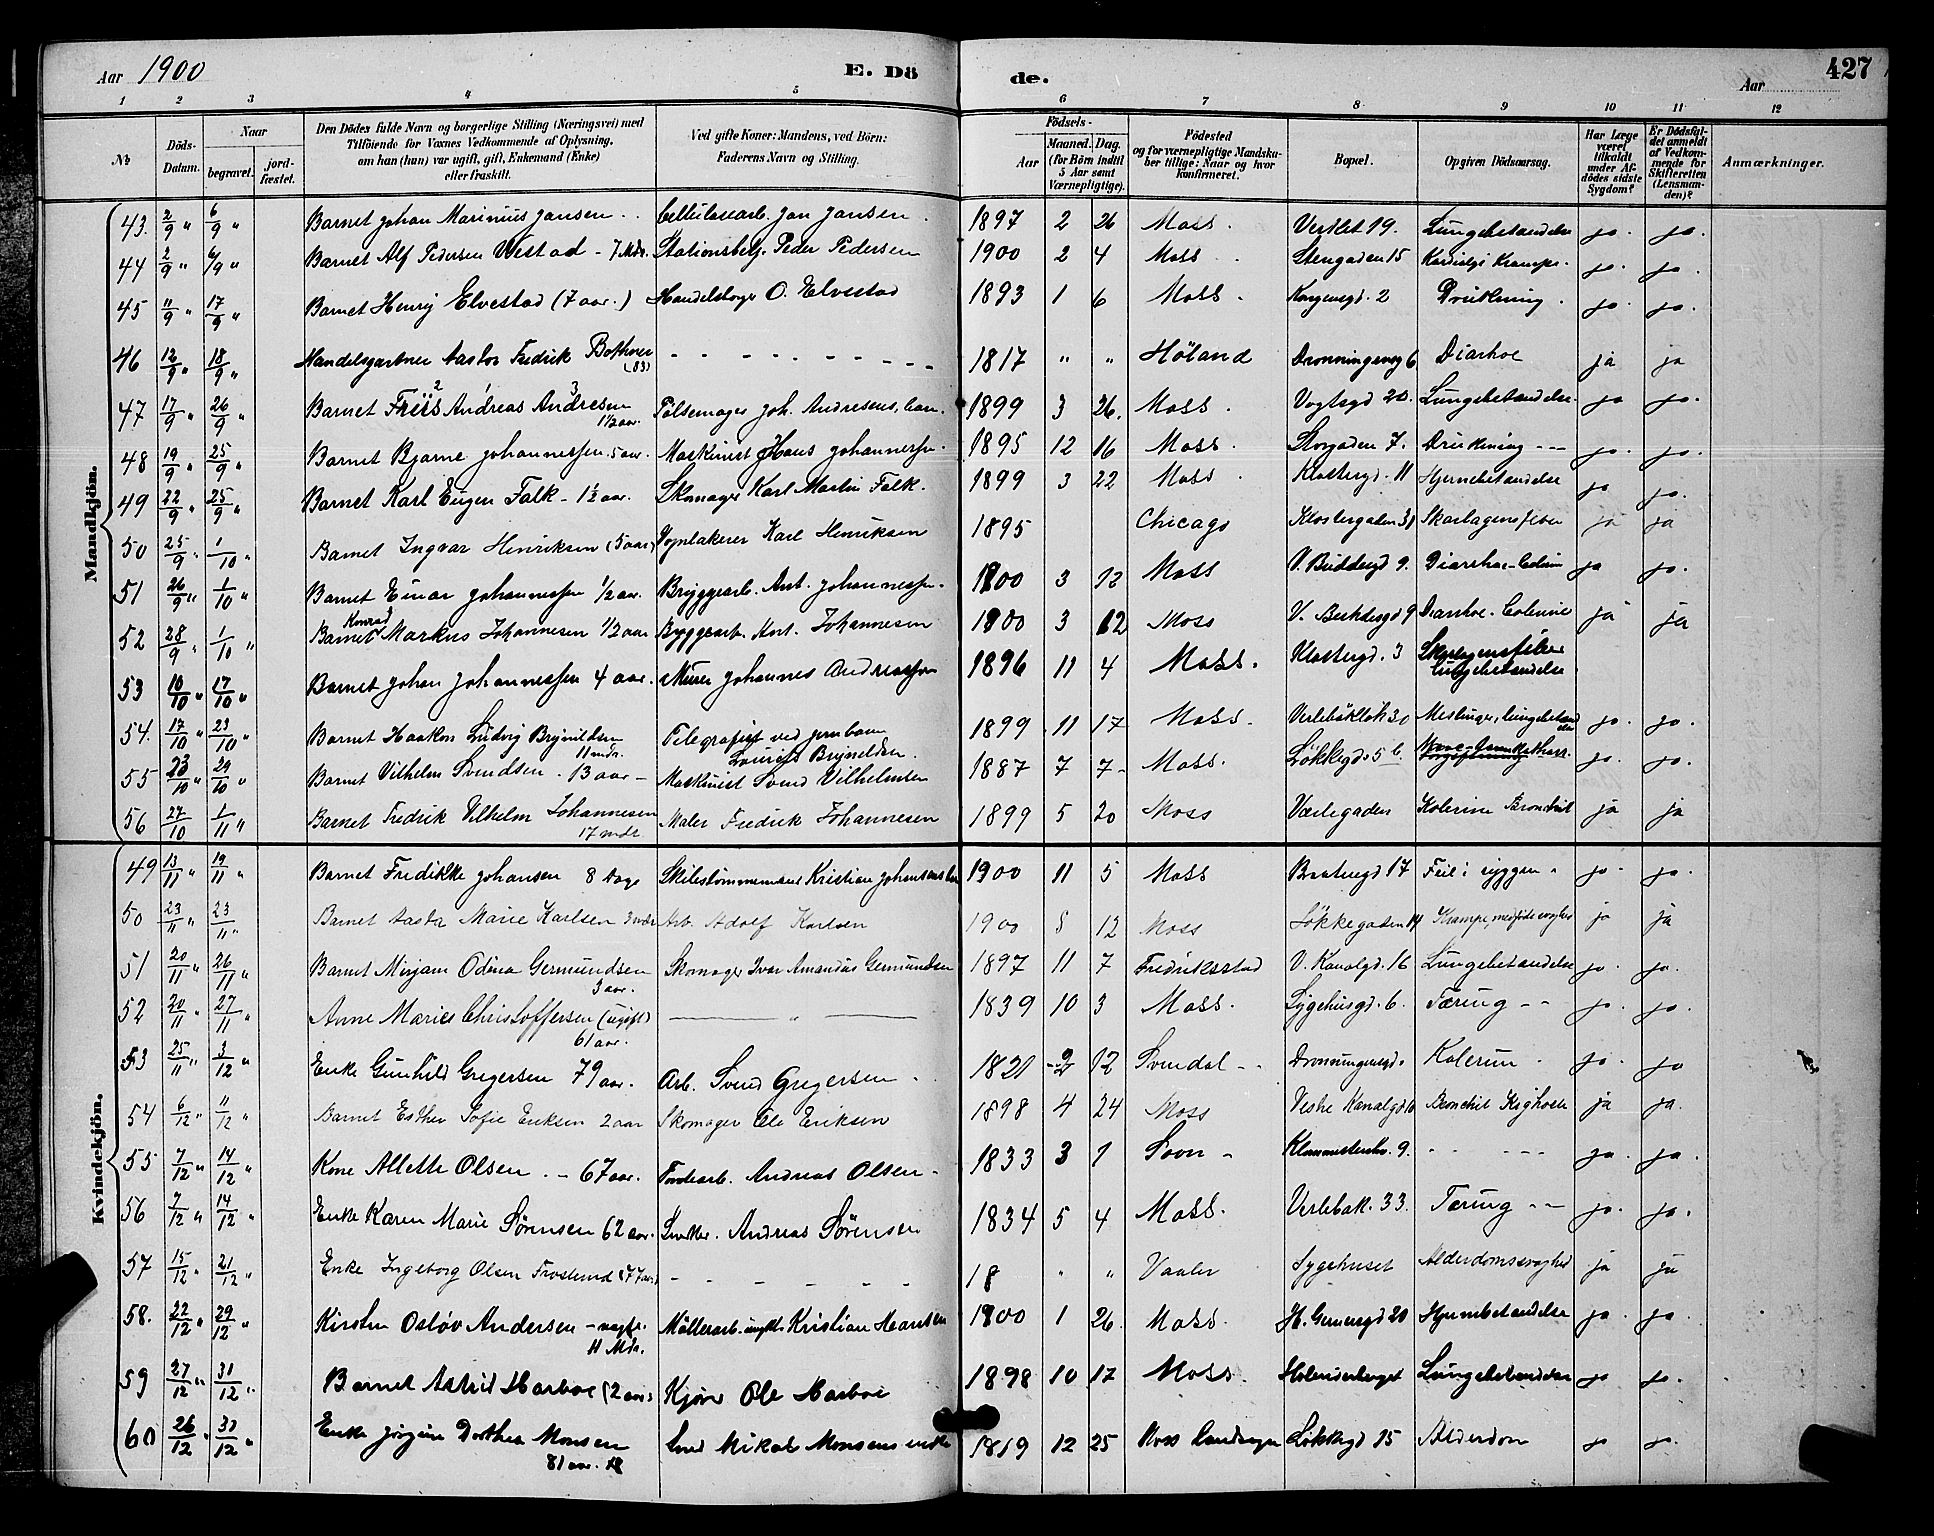 Aar 1900 E. Dö de. Aar 427
1 2 3 4 5 6 7 8 9 10 11 12
No
Döds-Datum.
Naar
begravet.
jord-fæstet.
Den Dödes fulde Navn og borgerlige Stilling (Næringsvei) med
Tilföiende for Voxnes Vedkommende af Oplysning,
om han (hun) var ugift, gift, Enkemand (Enke)
eller fraskilt.
Ved gifte Koner: Mandens, ved Börn:
Faderens Navn og Stilling.
Födsels-
Aar
Maaned. Dag.
(for Börn indtil
5 Aar samt
Værnepligtige).
Födested
og for værnepligtige Mandska-
ber tillige: Naar og hvor
konfirmeret.
Bopæl.
Opgiven Dödsaarsag.
Har Læge
været
tilkaldt
under Af-
dödes sidste
Sygdom?
Er Dödsfal-
det anmeldt
af Vedkom-
mende for
Skifteretten
(Lensman-
den)?
Anmærkninger.
Mandkjön.
43. 2/9 " 6/9 " Barnet Johan Marinius Jansen Cellulosearb. Jan Jansen 1897 2 26 Moss. Verket 19. Lungebetændelse ja. ja.
44 2/9 " 6/9 " Barnet Alf Pedersen Westad - 7 Mdr. Stationsbetj. Peder Pedersen 1900 2 4 Moss Stengaden 15 Krampe. ja. ja.
45 11/9 " 17/9 " Barnet Henry Elvestad (7 aar.) O. Elvestad 1893 1 6 Moss. Kongensgd. 2 Drukning. ja. ja.
46 12/9 " 18/9 " Handelsgartner Fredrik Bothner (83) 1817 " " Höland Dronningensg 6 Diarhoe ja ja
47 17/9 " 26/9 " Barnet Friis 2 Andreas 3 Andresen 1 1/2 aar. Pölsemager Joh. Andresens barn. 1899 3 26. Moss. Vogtsgd 20. Lungebetændelse. ja ja.
48 19/9 " 25/9 " Barnet Bjarne Johannessen. 5 aar. Maskinist Hans Johannessen. 1895 12 16 Moss. Storgaden 7. Drukning - - - ja. ja.
49 22/9 " 25/9 " Barnet Karl Eugen Falk - 1 1/2 aar. Skomager Karl Martin Falk. 1899 3 22 Moss Klostergd. 11 Hjernebetændelse ja ja.
50 25/9 " 1/10 " Barnet Ingvar Henriksen (5 aar) Vognlakerer Karl Henriksen 1895 Chicago Klostergaden 31 Skarlagensfeber ja ja
51 26/9 " 1/10 " Barnet Einar Johannessen 1/2 aar. Bryggearb. Ant. Johannessen. 1900 3 12 Moss V. Buddesgd 9. Diarrhoe - ja ja.
52 28/9 " 1/10 " Barnet Konrad Markus Johannesen 1/2 aar Bryggearb. Ant. Johannesen 1900 3 12 Moss V. 9 Diarrhoe - Colerine ja ja
53 10/10 " 17/10 " Barnet Johan Johannessen 4 aar. Murer Johannes Andreassen 1896 11 4 Moss. Klostergd. 3 Skarlagensfeber Lungebetændelse
54. 17/10 " 23/10 " Barnet Haakon Ludvig Brynildsen 11 mdr. Telegrafist ved jernbanen Laurits Brynildsen. 1899 11 17 Moss. 30 Meslinger, lungebetændelse ja. ja.
55 23/10 " 29/10 " Barnet Vilhelm Svendsen. 13 aar - Maskinist Svend Vilhelmsen 1887 7 7 - Moss. Løkkegd. 5 b. ja. ja.
56 27/10 1/11 " Barnet Fredrik Vilhelm Johannesen 17 mdr Maler Fredrik Johannesen 1899 5 20 Moss Værlegaden Kolerine Bronchit ja ja
Kvindekjön.
49 13/11 " 19/11 " Barnet Fredikke Johansen 8 dage Kristian Johansens 1900 11 5 Moss 17 Feil i ryggen " ja. ja.
50 23/11 " 23/11 " Barnet Marie Karlsen 3 mdr Arb. Adolf Karlsen 1900 8 12 Moss Løkkegaden 14 Krampe, ja ja
51 20/11 " 26/11 " Barnet Mirjam Odina Germundsen 3 aar. Skomager Ivar Amandus Germundsen 1897 11 7 Fredriksstad V. Kanalgd. 16 Lungebetændelse ja. ja.
52 20/11 " 27/11 " Anne Maries Christoffersen (ugift) 61 aar. " 1839 10 3 Moss. Sygehusgd. 6. Tæring - - ja. ja.
53 25/11 " 3/12 " Enke Gunhild Gregersen 79 aar. Arb. Svend Gregersen 1821 2 12 Svendal - - Dronningensgd. Kolerin ja. ja
54 6/12 " 11/12 " Barnet Esther Sofie Eriksen 2 aar Skomager Ole Eriksen 1898 4 24 Moss Vestre Kanalgd 10 Bronchit Kighoste ja ja.
55 7/12 " 14/12 " Kone Allette Olsen - 67 aar. Andreas Olsen - 1833 3 1 Soon - 9. - - - - ja. ja.
56 7/12 " 14/12 " Enke Karen Marie Sørensen 62 aar. Snedker. Andreas Sørensen 1834 5 4 Moss. Verlebak. 33. Tæring - - ja. ja.
57 15/12 " 21/12 " Enke Ingeborg Olsen (77 aar) - - - - - - 18 " " Vaaler Sygehuset Alderdomssvaghed ja ja
58. 22/12 " 29/12 " Kirsten Osløv Andersen - 11 Mdr. Möllerarb. ungkl. Kristian Hansen 1900 1 26. Moss. H. Gernersgd 20 Hjernebetændelse ja. ja.
59 27/12 " 31/12 " Barnet Astrid Harboe (2 aar) Kjøre Ole Harboe 1898 10 17 Moss. Lungebetændelse ja ja.
60 26/12 30/12 " Enke Jørgine Dorthea Monsen 81 aar. Smed Mikal Monsens enke 1819 12 25 Moss Løkkegd 15 Alderdom ja ja.